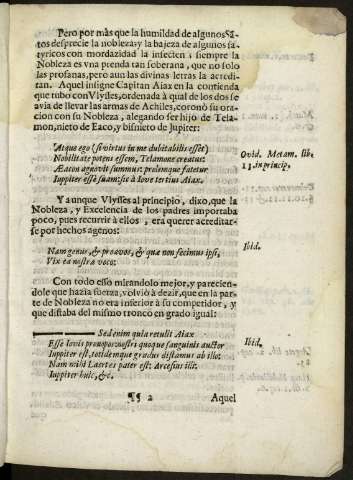 Pero por màs que la humildad de algunos Sã-
tos desprecie la nobleza: y la bajeza de algunos sa-
tyricos con mordazidad la infecten; siempre la
Nobleza es vna prenda tan soberana, que no solo
las profanas, pero aun las divinas letras la acredi-
tan. Aquel insigne Capitan Aiax en la contienda
que tubo con Vlysses, ordenada à qual de los dos se
avia de llevar las armas de Achiles, coronó su ora-
cion con su Nobleza, alegando ser hijo de Tela-
mon, nieto de Eaco, y bisnieto de Jupiter:
Atque ego (si virtus in me dubitabilis esset)
Nobilitate potens essem, Telamone creatus:
Æacon agnovit summus: prolemque fatetur
Iuppiter esse suam: sic à Iove tertius Aiax.
Ovid. Metam. lib.
13. in princip.
Y aunque Vlysses al principio, dixo, que la
Nobleza, y Excelencia de los padres importaba
poco, pues recurrir à ellos, era querer acreditar-
se por hechos agenos:
Nam genus, & proavos, & quæ non fecimus ipsi,
Vix ea nostra voco:
Ibid.
Con todo esso mirandolo mejor, y parecien-
dole que hazia fuerza, volvió à dezir, que en la par-
te de Nobleza no era inferior à su competidor, y
que distaba del mismo tronco en grado igual:
Sed enim quia retulit Aiax
Esse Iovis pronepos: nostri quoque sanguinis auctor
Iuppiter est, totidemque gradus distamus ab illo:
Nam mihi Laertes pater est: Arcesius illi:
Iuppiter huic, &c.
Ibid.
¶¶ 2
Aquel